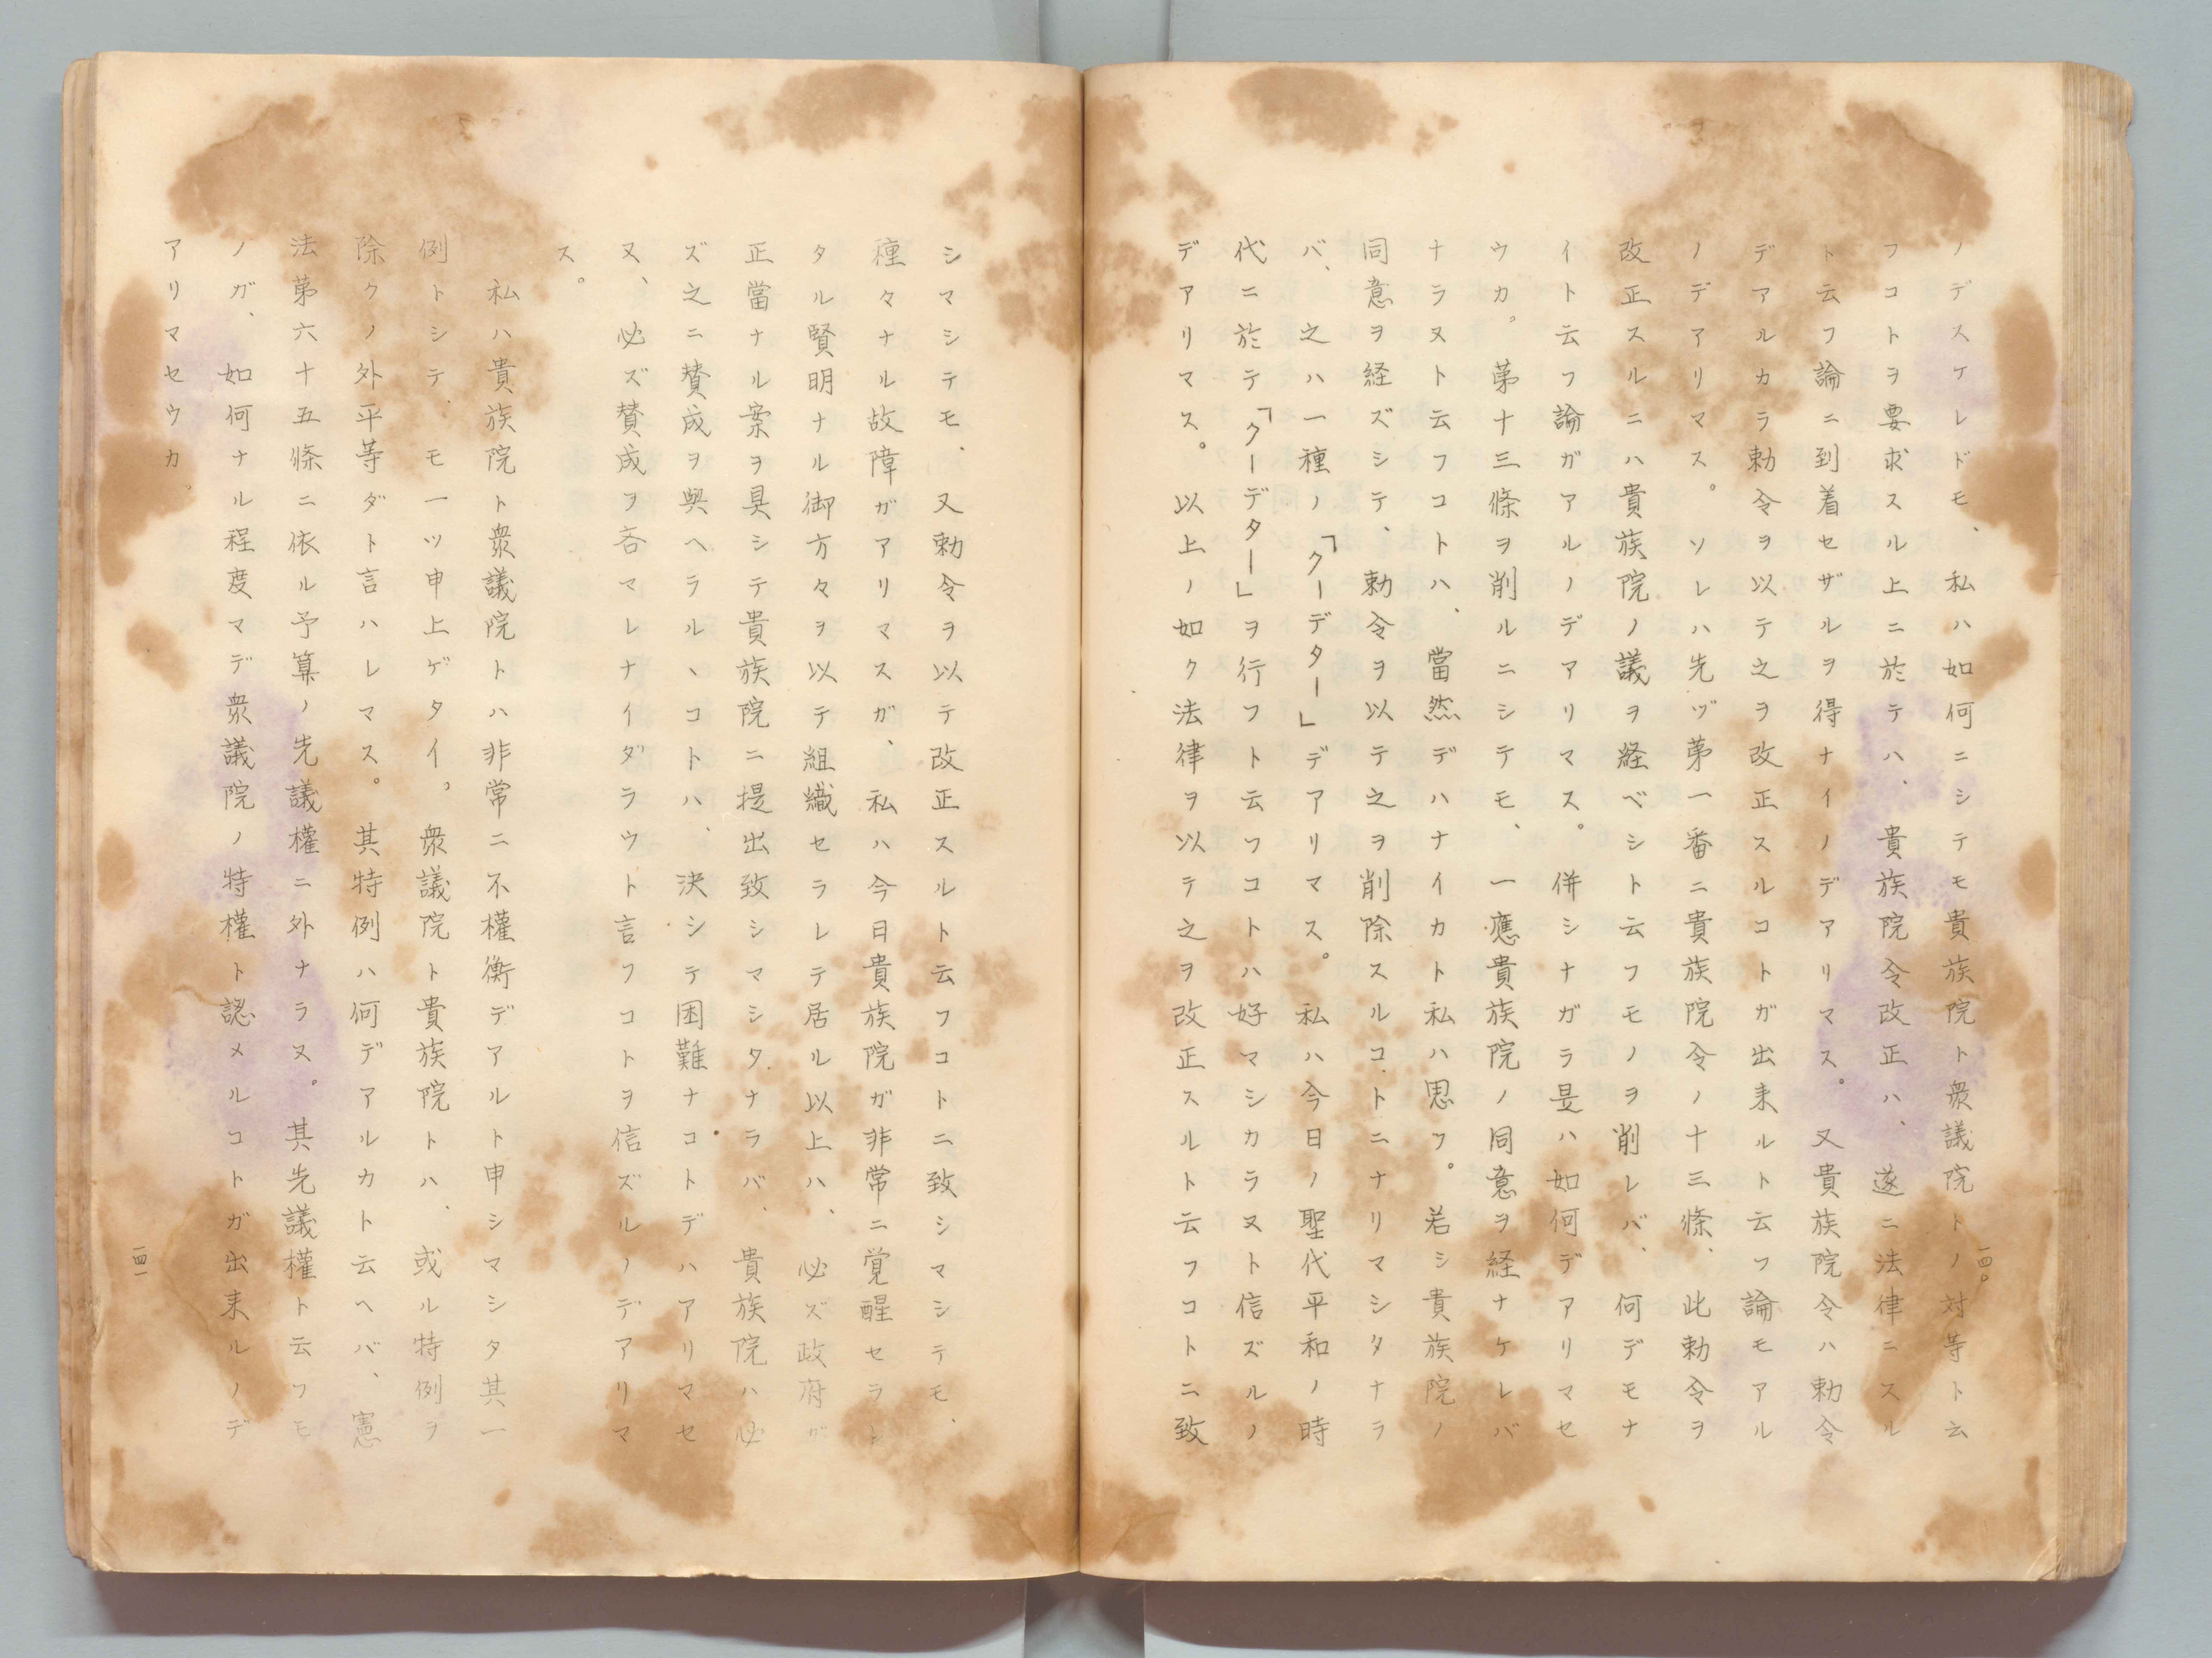 一四〇
ノデスケレドモ、私ハ如何ニシテモ貴族院ト衆議院トノ対等ト云
フコトヲ要求スル上ニ於テハ、貴族院令改正ハ、遂ニ法律ニスル
ト云フ論ニ到着セザルヲ得ナイノデアリマス。又貴族院令ハ勅令
デアルカラ勅令ヲ以テ之ヲ改正スルコトガ出来ルト云フ論モアル
ノデアリマス。ソレハ先ヅ第一番ニ貴族院令ノ十三條、此勅令ヲ
改正スルニハ貴族院ノ議ヲ経ベシト云フモノヲ削レバ、何デモナ
イト云フ論ガアルノデアリマス。併シナガラ是ハ如何デアリマセ
ウカ。第十三條ヲ削ルニシテモ、一應貴族院ノ同意ヲ経ナケレバ
ナラヌト云フコトハ、當然デハナイカト私ハ思フ。若シ貴族院ノ
同意ヲ経ズシテ、勅令ヲ以テ之ヲ削除スルコトニナリマシタナラ
バ、之ハ一種ノ「クーデター」デアリマス。私ハ今日ノ聖代平和ノ時
代ニ於テ「クーデター」ヲ行フト云フコトハ好マシカラヌト信ズルノ
デアリマス。以上ノ如ク法律ヲ以テ之ヲ改正スルト云フコトニ致
シマシテモ、又勅令ヲ以テ改正スルト云フコトニ致シマシテモ、
種々ナル故障ガアリマスガ、私ハ今日貴族院ガ非常ニ覚醒セラレ
タル賢明ナル御方々ヲ以テ組織セラレテ居ル以上ハ、必ズ政府ガ
正當ナル案ヲ具シテ貴族院ニ提出致シマシタナラバ、貴族院ハ必
ズ之ニ賛成ヲ與ヘラルヽコトハ、決シテ困難ナコトデハアリマセ
ヌ、必ズ賛成ヲ吝マレナイダラウト言フコトヲ信ズルノデアリマ
ス。
私ハ貴族院ト衆議院トハ非常ニ不權衡デアルト申シマシタ其一
例トシテ、モ一ツ申上ゲタイ。衆議院ト貴族院トハ、或ル特例ヲ
除クノ外平等ダト言ハレマス。其特例ハ何デアルカト云ヘバ、憲
法第六十五條ニ依ル予算ノ先議權ニ外ナラヌ。其先議權ト云フモ
ノガ、如何ナル程度マデ衆議院ノ特權ト認メルコトガ出来ルノデ
アリマセウカ。
一四一